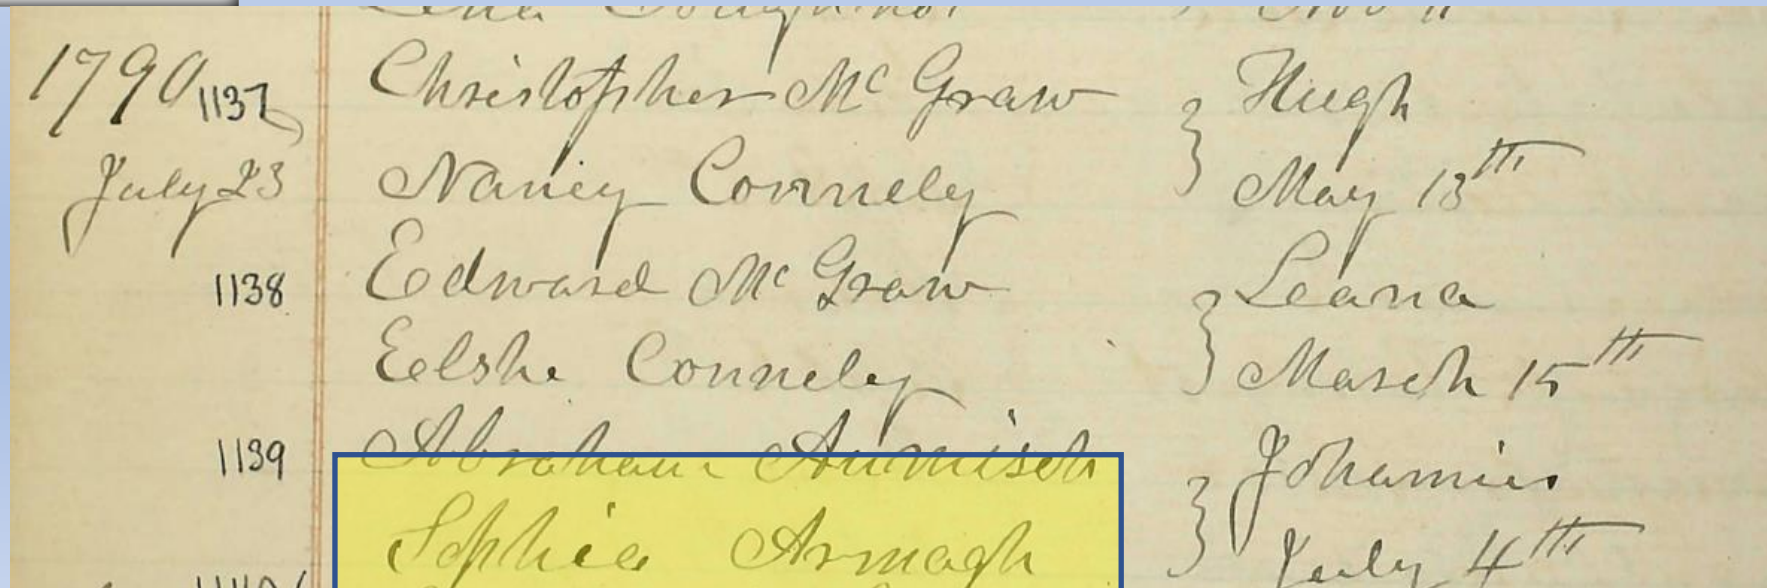 Nov 11
1790 1137 Christopher Mc Graw } Hugh
July 23 Nancy Connely May 13th
1138 Edward Mc Graw } Leana
Eelshe Connely March 15th
1139 Abraham Aumisch } Johannis
Sophia Armagh July 4th